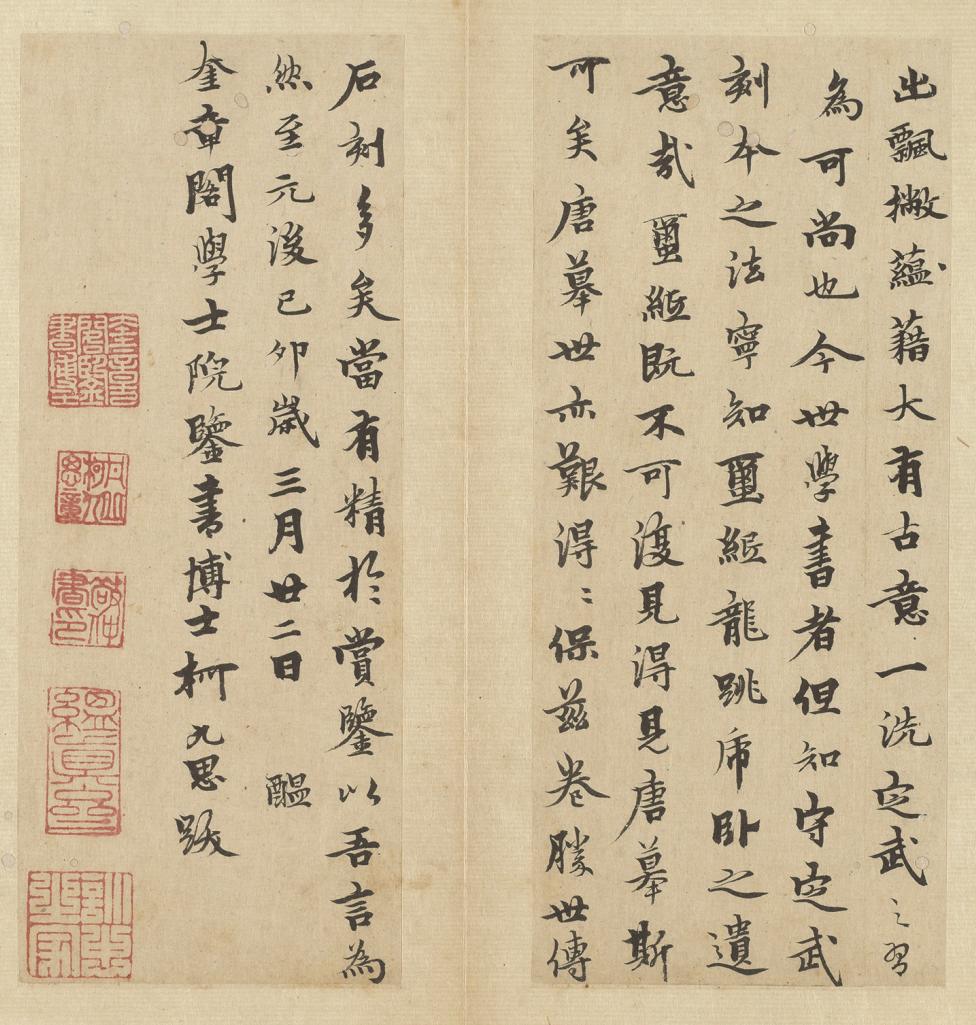 出飄撇蘊藉大有古意一洗定武之習
為可尚也今世學書者但知守定武
刻本之法寧知蠒紙龍跳虎臥之遺
意哉蠒紙既不可復見得見唐摹斯
可矣唐摹世亦艱得〻保茲卷勝世傳
石刻多矣當有精於賞鑒以吾言為
然至元後己卯歲三月廿二日 醞
奎章閣學士院鑒書博士柯九思跋
奎章閣鑒書博士
敬仲書印
縕真齋
訓忠之家